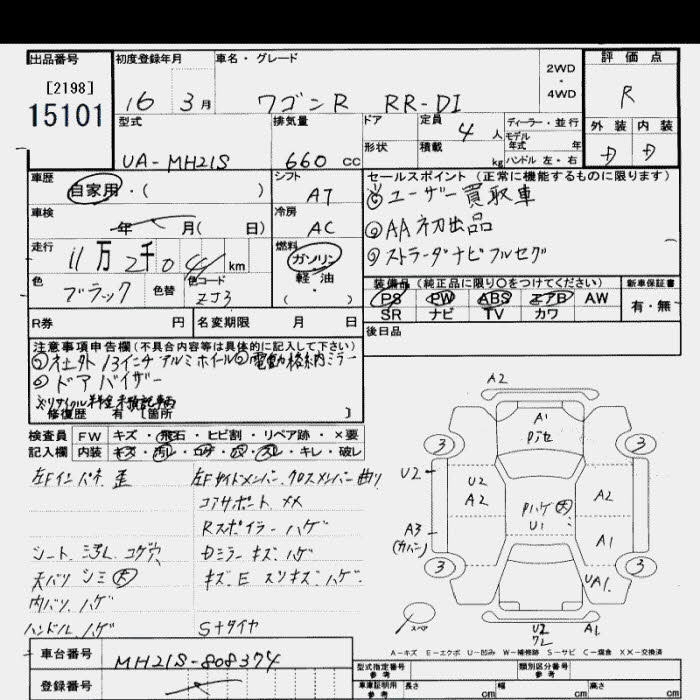 出品番号 初度登録年月 車名・グレード 2WD・4WD 評価点
[2198]
15101 16 3月 ワゴンR RR-DI R
型式 排気量 ドア 定員 4人 ディーラー・並行 外装 内装
モデル年式 年
UA-MH21S 660cc 形状 積載 kg ハンドル 左・右 D D
車歴 自家用・( ) シフト AT セールスポイント (正常に機能するものに限ります)
①ユーザー買取車
車検 年 月( 日) 冷房 AC ②AA初出品
走行 11万2千04 km 燃料 ガソリン 軽・油 ( ) ③ストラーダナビフルセグ
色 ブラック 色替 色コード ZJ3
装備品 (純正品に限り○をつけてください) 新車保証書
PS PW ABS エアB AW 有・無
SR ナビ TV カワ
R券 円 名変期限 月 日 後日品
注意事項申告欄(不具合内容等は具体的に記入して下さい)
①社外13インチアルミホイル②電動格納ミラー
③ドアバイザー
※リサイクル料金未預託車両
修復歴 有 [箇所 ]
検査員 FW キズ・飛石・ヒビ割・リペア跡・×要
記入欄 内装 キズ・汚レ・コゲ・穴・スレ・キレ・破レ
左Fインパネ 歪 左Fサイドメンバー,クロスメンバー曲り
コアサポート ××
Rスポイラー ハゲ
シート シミ コゲ穴 Dミラー キズ ハゲ
天バリ シミ 大 キズ E スリキズ ハゲ
内バリ ハゲ
ハンドル ハゲ S+タイヤ
A2
A1
3 3
U2 U2 A2 A2
Pハゲ 大
U1
A3 (カバー) A1
3 3
UA1
スペア U2 A1
ワレ
A-キズ E-エクボ U-凹み W-補修跡 S-サビ C-腐食 ××-交換済
車台番号 MH21S-808374
登録番号
型式指定番号 参考 類別区分番号 参考
車庫証明用 参考 長さ cm 幅 cm 高さ cm